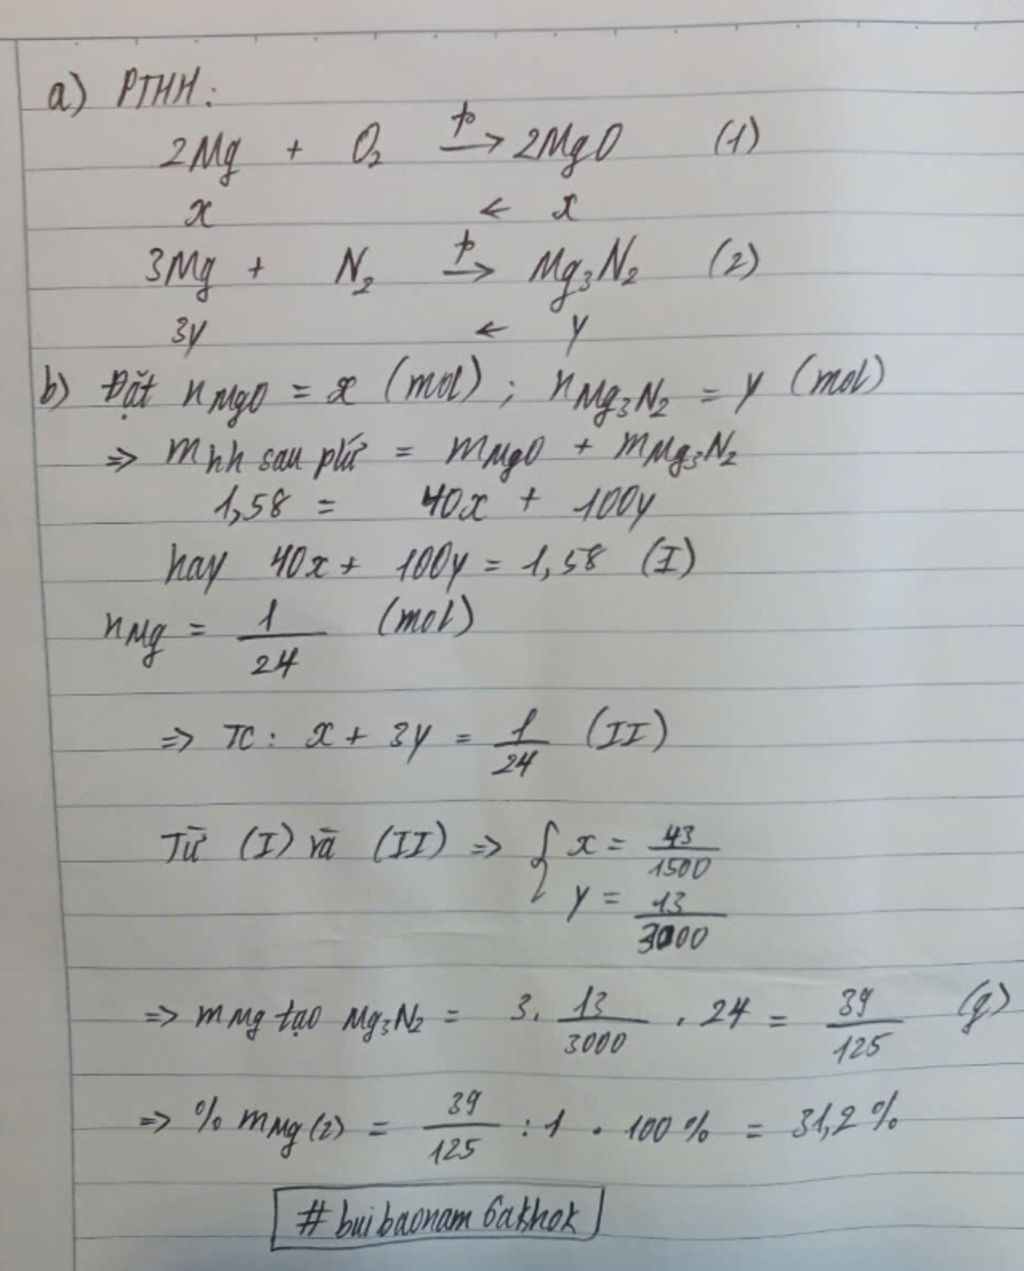 a) PTHH:
2Mg + O₂ →(t°) 2MgO (1)
x ← x
3Mg + N₂ →(t°) Mg₃N₂ (2)
3y ← y
b) Đặt nMgO = x (mol); nMg₃N₂ = y (mol)
=> mhh sau pứ = mMgO + mMg₃N₂
1,58 = 40x + 100y
hay 40x + 100y = 1,58 (I)
nMg = 1/24 (mol)
=> TC: x + 3y = 1/24 (II)
Từ (I) và (II) => { x = 43/1500
y = 13/3000
=> mMg tạo Mg₃N₂ = 3. 13/3000 . 24 = 39/125 (g)
=> % mMg(2) = 39/125 : 1 . 100% = 31,2%
#buibaonam6akhok